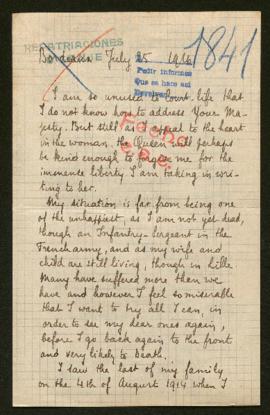 REPATRIACIONES
1841
July 25 1916
Pedir informes
Que se hace así
I am so unused to Court life that
I do not know how to address Your Ma-
jesty. But still as I appeal to the heart
in the woman, the Queen will perhaps
be kind enough to excuse me for the
immense liberty I am taking in wri-
ting to her.
My situation is far from being one
of the unhappiest, as I am not yet dead,
though an Infantry-Sergeant in the
French army, and as my wife and
child are still living, though in Lille.
Many have suffered more than we
have and however I feel so miserable
that I want to try all I can, in
order to see my dear ones again,
before I go back again to the front
and very likely to Death.
I saw the last of my family
on the 4th of August 1914 when I